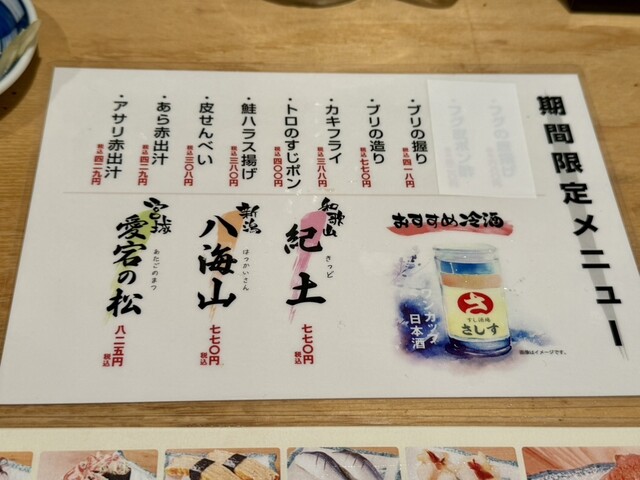 期間限定メニュー
・ブリの握り 税込四一八円
・ブリの造り 税込七七〇円
・カキフライ 税込三八八円
・トロのすじポン 税込四〇〇円
・鮭ハラス揚げ 税込三八〇円
・皮せんべい 税込三〇八円
・あら赤出汁 税込四二九円
・アサリ赤出汁 税込四二九円
おすすめ冷酒
ワンカップ
日本酒
さ
すし酒場
さしす
※画像はイメージです。
和歌山
紀土
きっど
七七〇円税込
新潟
八海山
はっかいさん
七七〇円税込
宮城
愛宕の松
あたごのまつ
八二五円税込